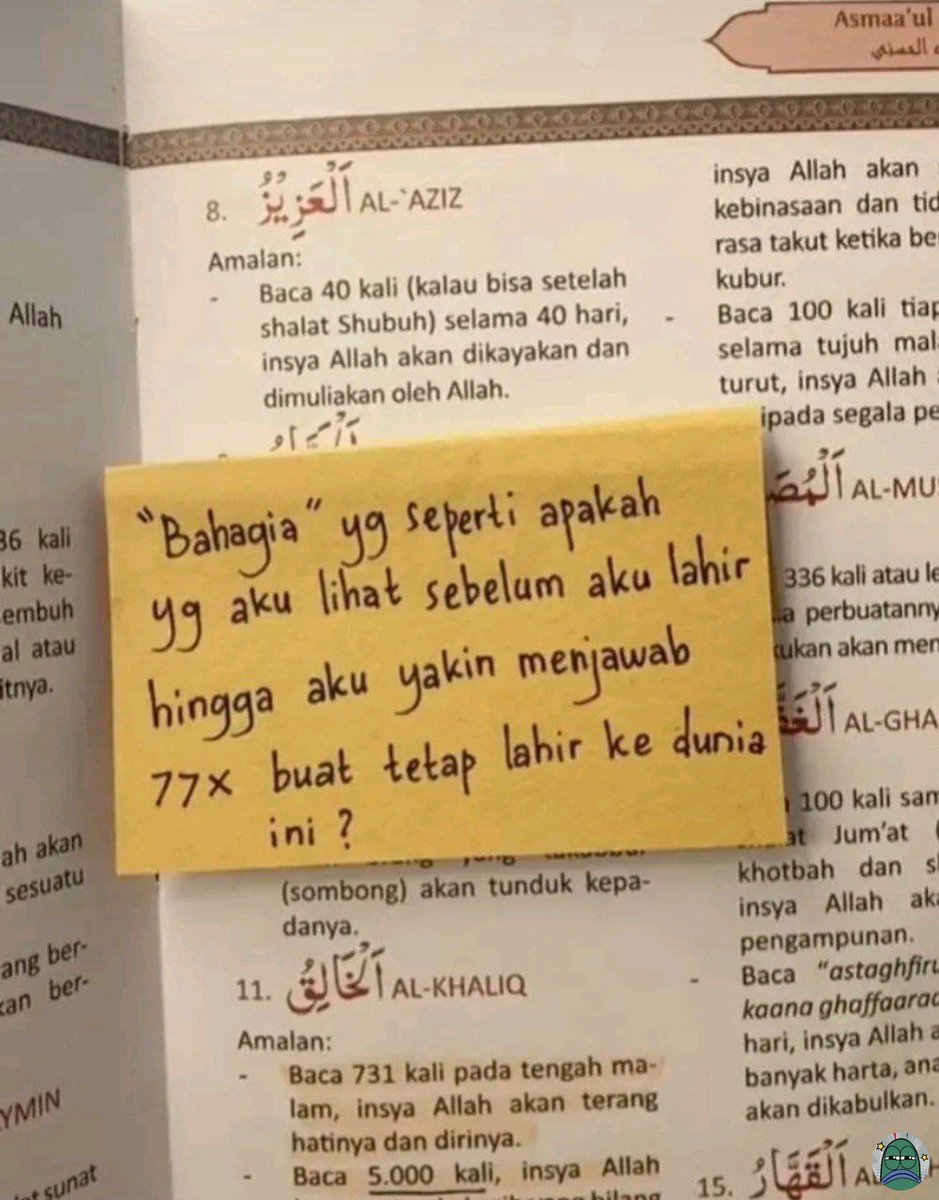 Asmaa'ul
Allah
36 kali
kit ke-
embuh
al atau
itnya.
ah akan
sesuatu
ang ber-
kan ber-
YMIN
sunat
8. اَلْعَزِيْزُ AL-`AZIZ
Amalan:
- Baca 40 kali (kalau bisa setelah
shalat Shubuh) selama 40 hari,
insya Allah akan dikayakan dan
dimuliakan oleh Allah.
"Bahagia" yg seperti apakah
yg aku lihat sebelum aku lahir
hingga aku yakin menjawab
77x buat tetap lahir ke dunia
ini ?
(sombong) akan tunduk kepa-
danya.
11. اَلْخَالِقُ AL-KHALIQ
Amalan:
- Baca 731 kali pada tengah ma-
lam, insya Allah akan terang
hatinya dan dirinya.
- Baca 5.000 kali, insya Allah
insya Allah akan
kebinasaan dan tid
rasa takut ketika be
kubur.
- Baca 100 kali tiap
selama tujuh mal
turut, insya Allah
ipada segala pe
AL-MU
336 kali atau le
a perbuatanny
kukan akan men
AL-GHA
100 kali sam
at Jum'at (
khotbah dan s
insya Allah ak
pengampunan.
- Baca "astaghfiru
kaana ghaffaaraa
hari, insya Allah a
banyak harta, ana
akan dikabulkan.
15. اَلْقَهَّارُ